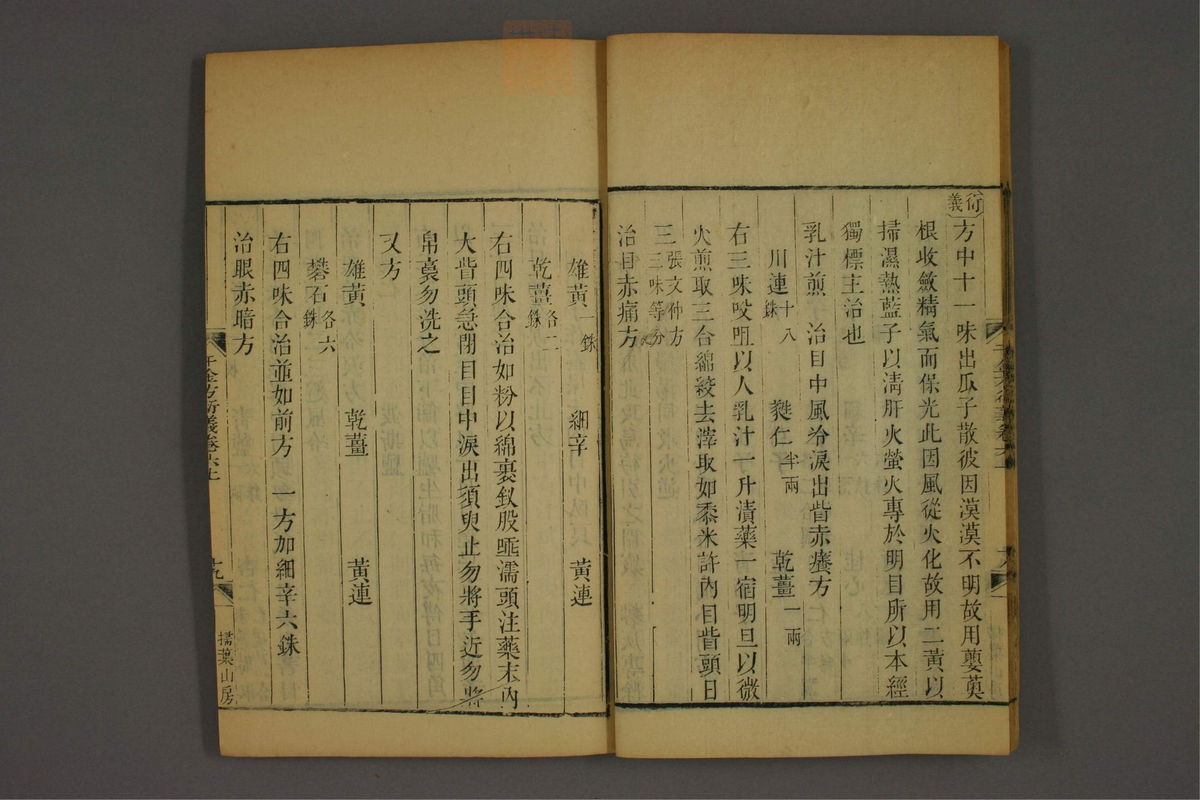 衍義
方中十一味出瓜子散彼因漠漠不明故用蔓荑
根收斂精氣而保光此因風從火化故用二黃以
掃濕熱藍子以清肝火螢火專於明目所以本經
獨標主治也
乳汁煎 治目中風冷淚出眥赤癢方
川連十八銖 蕤仁半兩 乾薑一兩
右三味㕮咀以人乳汁一升漬藥一宿明旦以微
火煎取三合綿絞去滓取如黍米許內目眥頭日
三張文仲方三味等分
治目赤痛方
千金方衍義卷六上
十八
雄黃一銖 細辛 黃連
乾薑各二銖
右四味合治如粉以綿裹釵股唾濡頭注藥末內
大眥頭急閉目目中淚出須臾止勿將手近勿將
帛裛勿洗之
又方
雄黃 乾薑 黃連
礬石各六銖
右四味合治並如前方 一方加細辛六銖
治眼赤暗方
千金方衍義卷六上
十九
掃葉山房